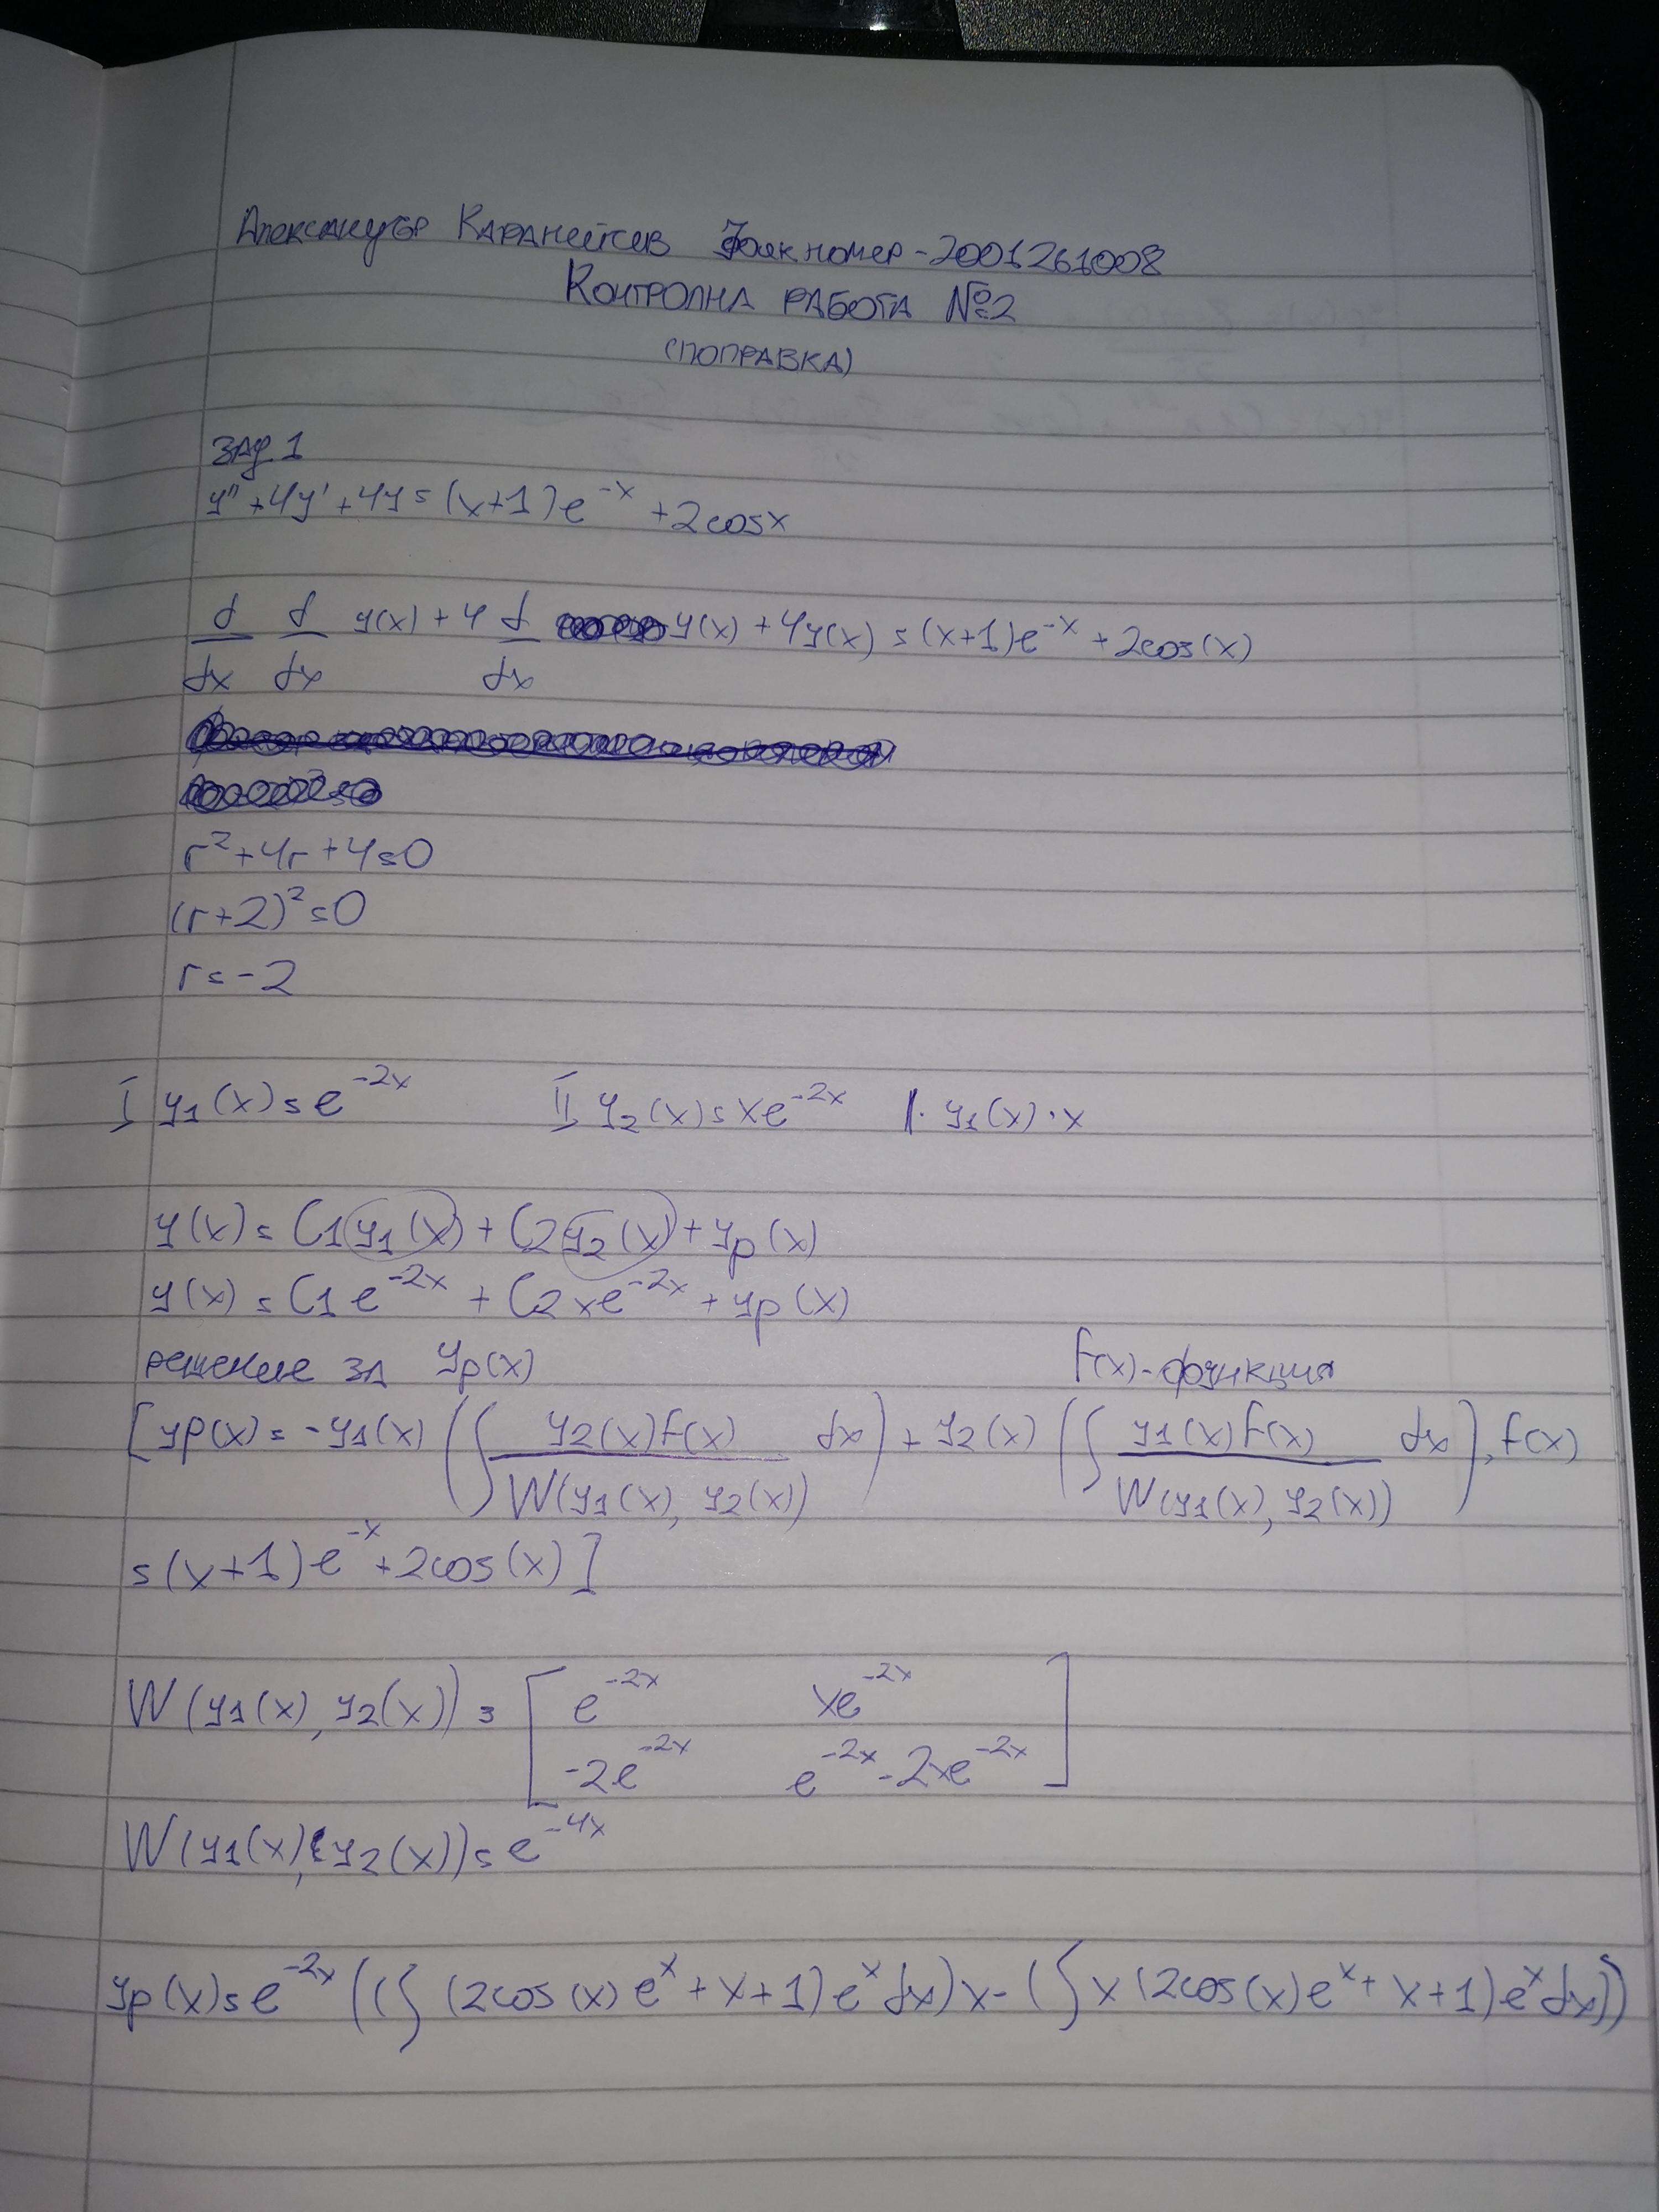 Александър Факномер-2001261008
КОНТРОЛНА РАБОТА №2
(ПОПРАВКА)
ЗАД 1
y"+4y'+4y=(x+1)e^-x +2cosx
d/dx d/dx y(x)+4 d/dx y(x)+4y(x)=(x+1)e^-x+2cos(x)
r²+4r+4=0
(r+2)²=0
r=-2
I y1(x)=e^-2x II y2(x)=xe^-2x |· y1(x)·x
y(x)=C1y1(x)+C2y2(x)+yp(x)
y(x)=C1e^-2x+C2xe^-2x+yp(x)
решение за yp(x) f(x)-функция
[yp(x)=-y1(x)(∫ y2(x)f(x)/W(y1(x), y2(x)) dx)+y2(x)(∫ y1(x)f(x)/W(y1(x), y2(x)) dx), f(x)
=(x+1)e^-x+2cos(x)]
W(y1(x), y2(x))=[e^-2x xe^-2x
-2e^-2x e^-2x-2xe^-2x]
W(y1(x), y2(x))=e^-4x
yp(x)=e^-2x((∫(2cos(x)e^x+x+1)e^x dx)x-(∫x(2cos(x)e^x+x+1)e^x dx))